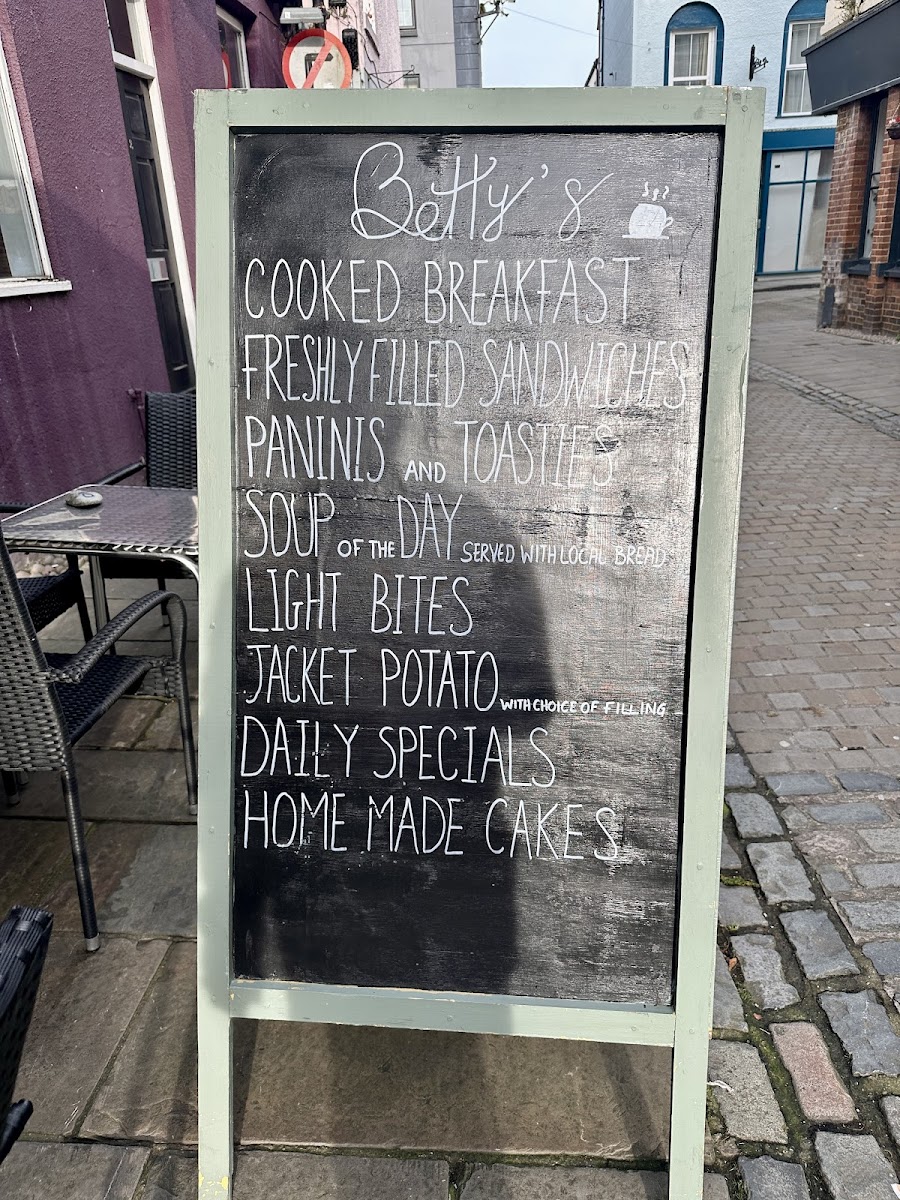 Betty's
COOKED BREAKFAST
FRESHLY FILLED SANDWICHES
PANINIS AND TOASTIES
SOUP OF THE DAY SERVED WITH LOCAL BREAD
LIGHT BITES
JACKET POTATO WITH CHOICE OF FILLING
DAILY SPECIALS
HOME MADE CAKES